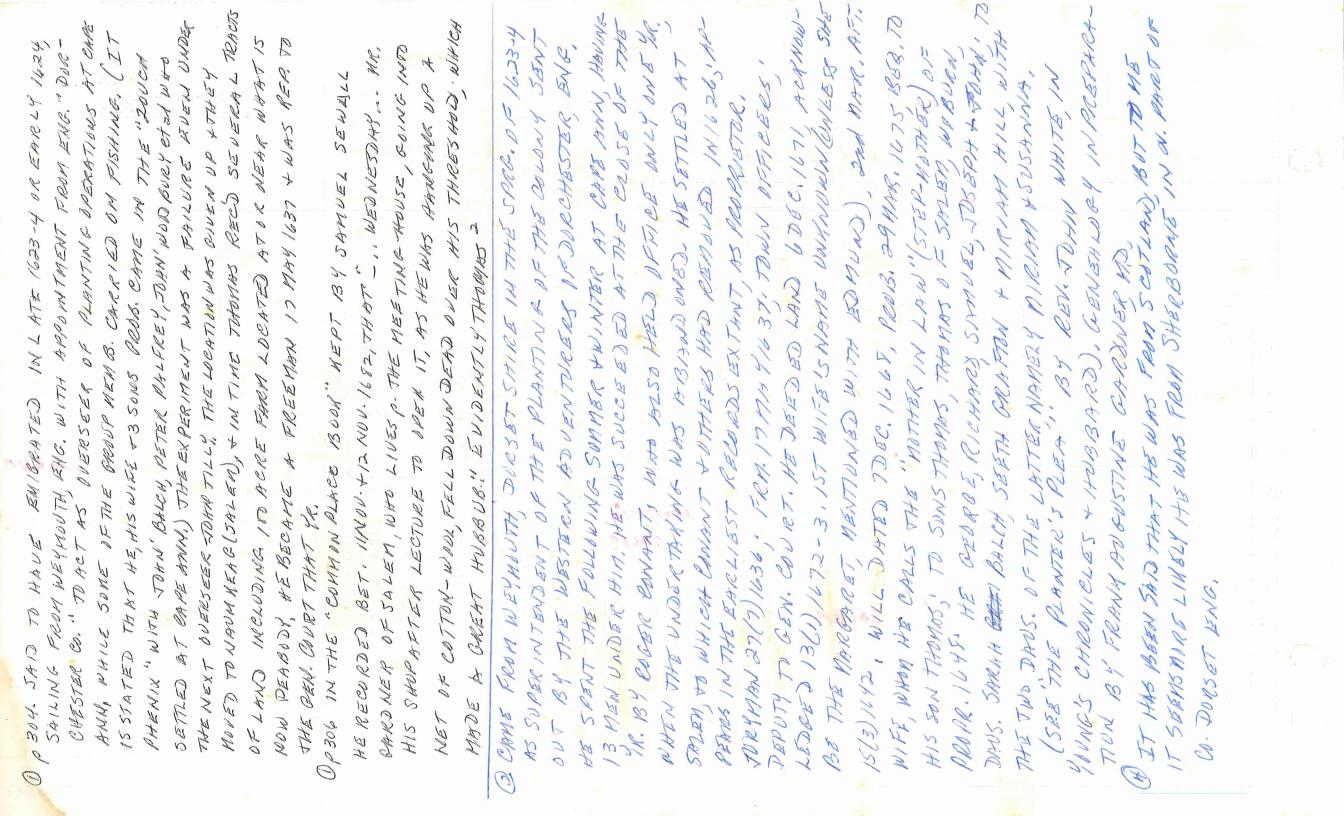 ① p 304. SAID TO HAVE EMIGRATED IN LATE 1623-4 OR EARLY 1624,
SAILING FROM WEYMOUTH, ENG. WITH APPOINTMENT FROM ENG. "DOR-
CHESTER CO." TO ACT AS OVERSEER OF PLANTING OPERATIONS AT CAPE
ANN, WHILE SOME OF THE GROUP MEMB. CARRIED ON FISHING. (IT
IS STATED THAT HE, HIS WIFE + 3 SONS PROB. CAME IN THE "ZOUCH
PHENIX" WITH JOHN BALCH, PETER PALFREY, JOHN WOODBURY et al WHO
SETTLED AT CAPE ANN.) THE EXPERIMENT WAS A FAILURE EVEN UNDER
THE NEXT OVERSEER JOHN TILLY, THE LOCATION WAS GIVEN UP + THEY
MOVED TO NAUMKEAG (SALEM), + IN TIME THOMAS REC'D SEVERAL TRACTS
OF LAND INCLUDING 100 ACRE FARM LOCATED AT OR NEAR WHAT IS
NOW PEABODY, HE BECAME A FREEMAN 17 MAY 1637 + WAS REP. TO
THE GEN. COURT THAT YR.
① p 306 IN THE "COMMON PLACE BOOK" KEPT BY SAMUEL SEWELL
HE RECORDED BET. 11 NOV. + 12 NOV. 1682, THAT "... WEDNESDAY... MR.
GARDNER OF SALEM, WHO LIVES p. THE MEETING HOUSE, GOING INTO
HIS SHOP AFTER LECTURE TO OPEN IT, AS HE WAS HANGING UP A
NET OF COTTON-WOOL, FELL DOWN DEAD OVER HIS THRESHOLD, WHICH
MADE A GREAT HUBBUB." EVIDENTLY THOMAS²
② CAME FROM WEYMOUTH, DORSET SHIRE IN THE SPRG. OF 1623-4
AS SUPERINTENDENT OF THE PLANTING OF THE COLONY SENT
OUT BY THE WESTERN ADVENTURERS OF DORCHESTER, ENG.
HE SPENT THE FOLLOWING SUMMER + WINTER AT CAPE ANN, HAVING
13 MEN UNDER HIM. HE WAS SUCCEEDED AT THE CLOSE OF THE
YR. BY ROGER CONANT, WHO ALSO HELD OFFICE ONLY ONE YR.
WHEN THE UNDERTAKING WAS ABANDONED. HE SETTLED AT
SALEM, TO WHICH CONANT + OTHERS HAD REMOVED IN 1626, AP-
PEARS IN THE EARLIEST RECORDS EXTANT, AS PROPRIETOR.
JURYMAN 27(7)1636; FRM. 17 MAY 1637, TOWN OFFICERS;
DEPUTY TO GEN. COURT. HE DEEDED LAND 6 DEC. 1671, ACKNOW-
LEDGED 13(1)1672-3. 1ST WIFE'S NAME UNKNOWN (UNLESS SHE
BE THE MARGARET, MENTIONED WITH EDMUND), 2nd MAR. AFT.
15(3)1642. WILL DATED 7 DEC. 1668, PROB. 29 MAR. 1675 BEQ. TO
WIFE, WHOM HE CALLS THE "MOTHER IN LAW" (STEP-MOTHER) OF
HIS SON THOMAS; TO SONS THOMAS, THOMAS OF SALEM, WOBURN,
PROPR. 1645. HE GEORGE, RICHARD, SAMUEL, JOSEPH + JOHN, TO
DAUS. SARAH BALCH, SEETH GRAFTON + MIRIAM HILL, WITH
THE TWO DAUS. OF THE LATTER NAMELY MIRIAM + SUSANNA.
(SEE "THE PLANTER'S PLEA" BY REV. JOHN WHITE, IN
YOUNG'S CHRONICLES + HUBBARD). GENEALOGY IN PREPARA-
TION BY FRANK AUGUSTINE GARDNER MD.
④ IT HAS BEEN SAID THAT HE WAS FROM SCOTLAND, BUT TO ME
IT SEEMS MORE LIKELY HE WAS FROM SHERBORNE IN N. PART OF
CO. DORSET ENG.